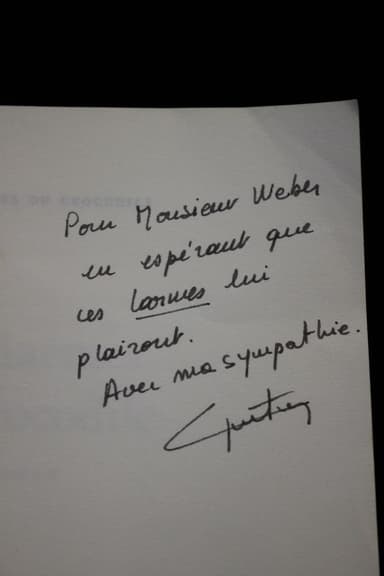 Pour Monsieur Weber
en espérant que
ces larmes lui
plairont.
Avec ma sympathie.